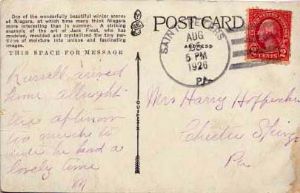 One of the wonderful beautiful winter scenes
at Niagara, at which time many think Niagara
more interesting than in summer. A striking
example of the art of Jack Frost, who has
modeled, moulded and crystallized the tiny particles
of moisture into unique and fascinating
images.
THIS SPACE FOR MESSAGE
POST CARD
SAINT
AUG
5 PM
1926
PA.
2 CENTS 2
Russell arrived
home allright
this afternoon
too much to
he had a
lovely time
Mrs Harry
Chester Springs
Pa